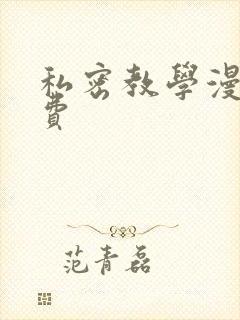 私密教學漫
費
范青磊